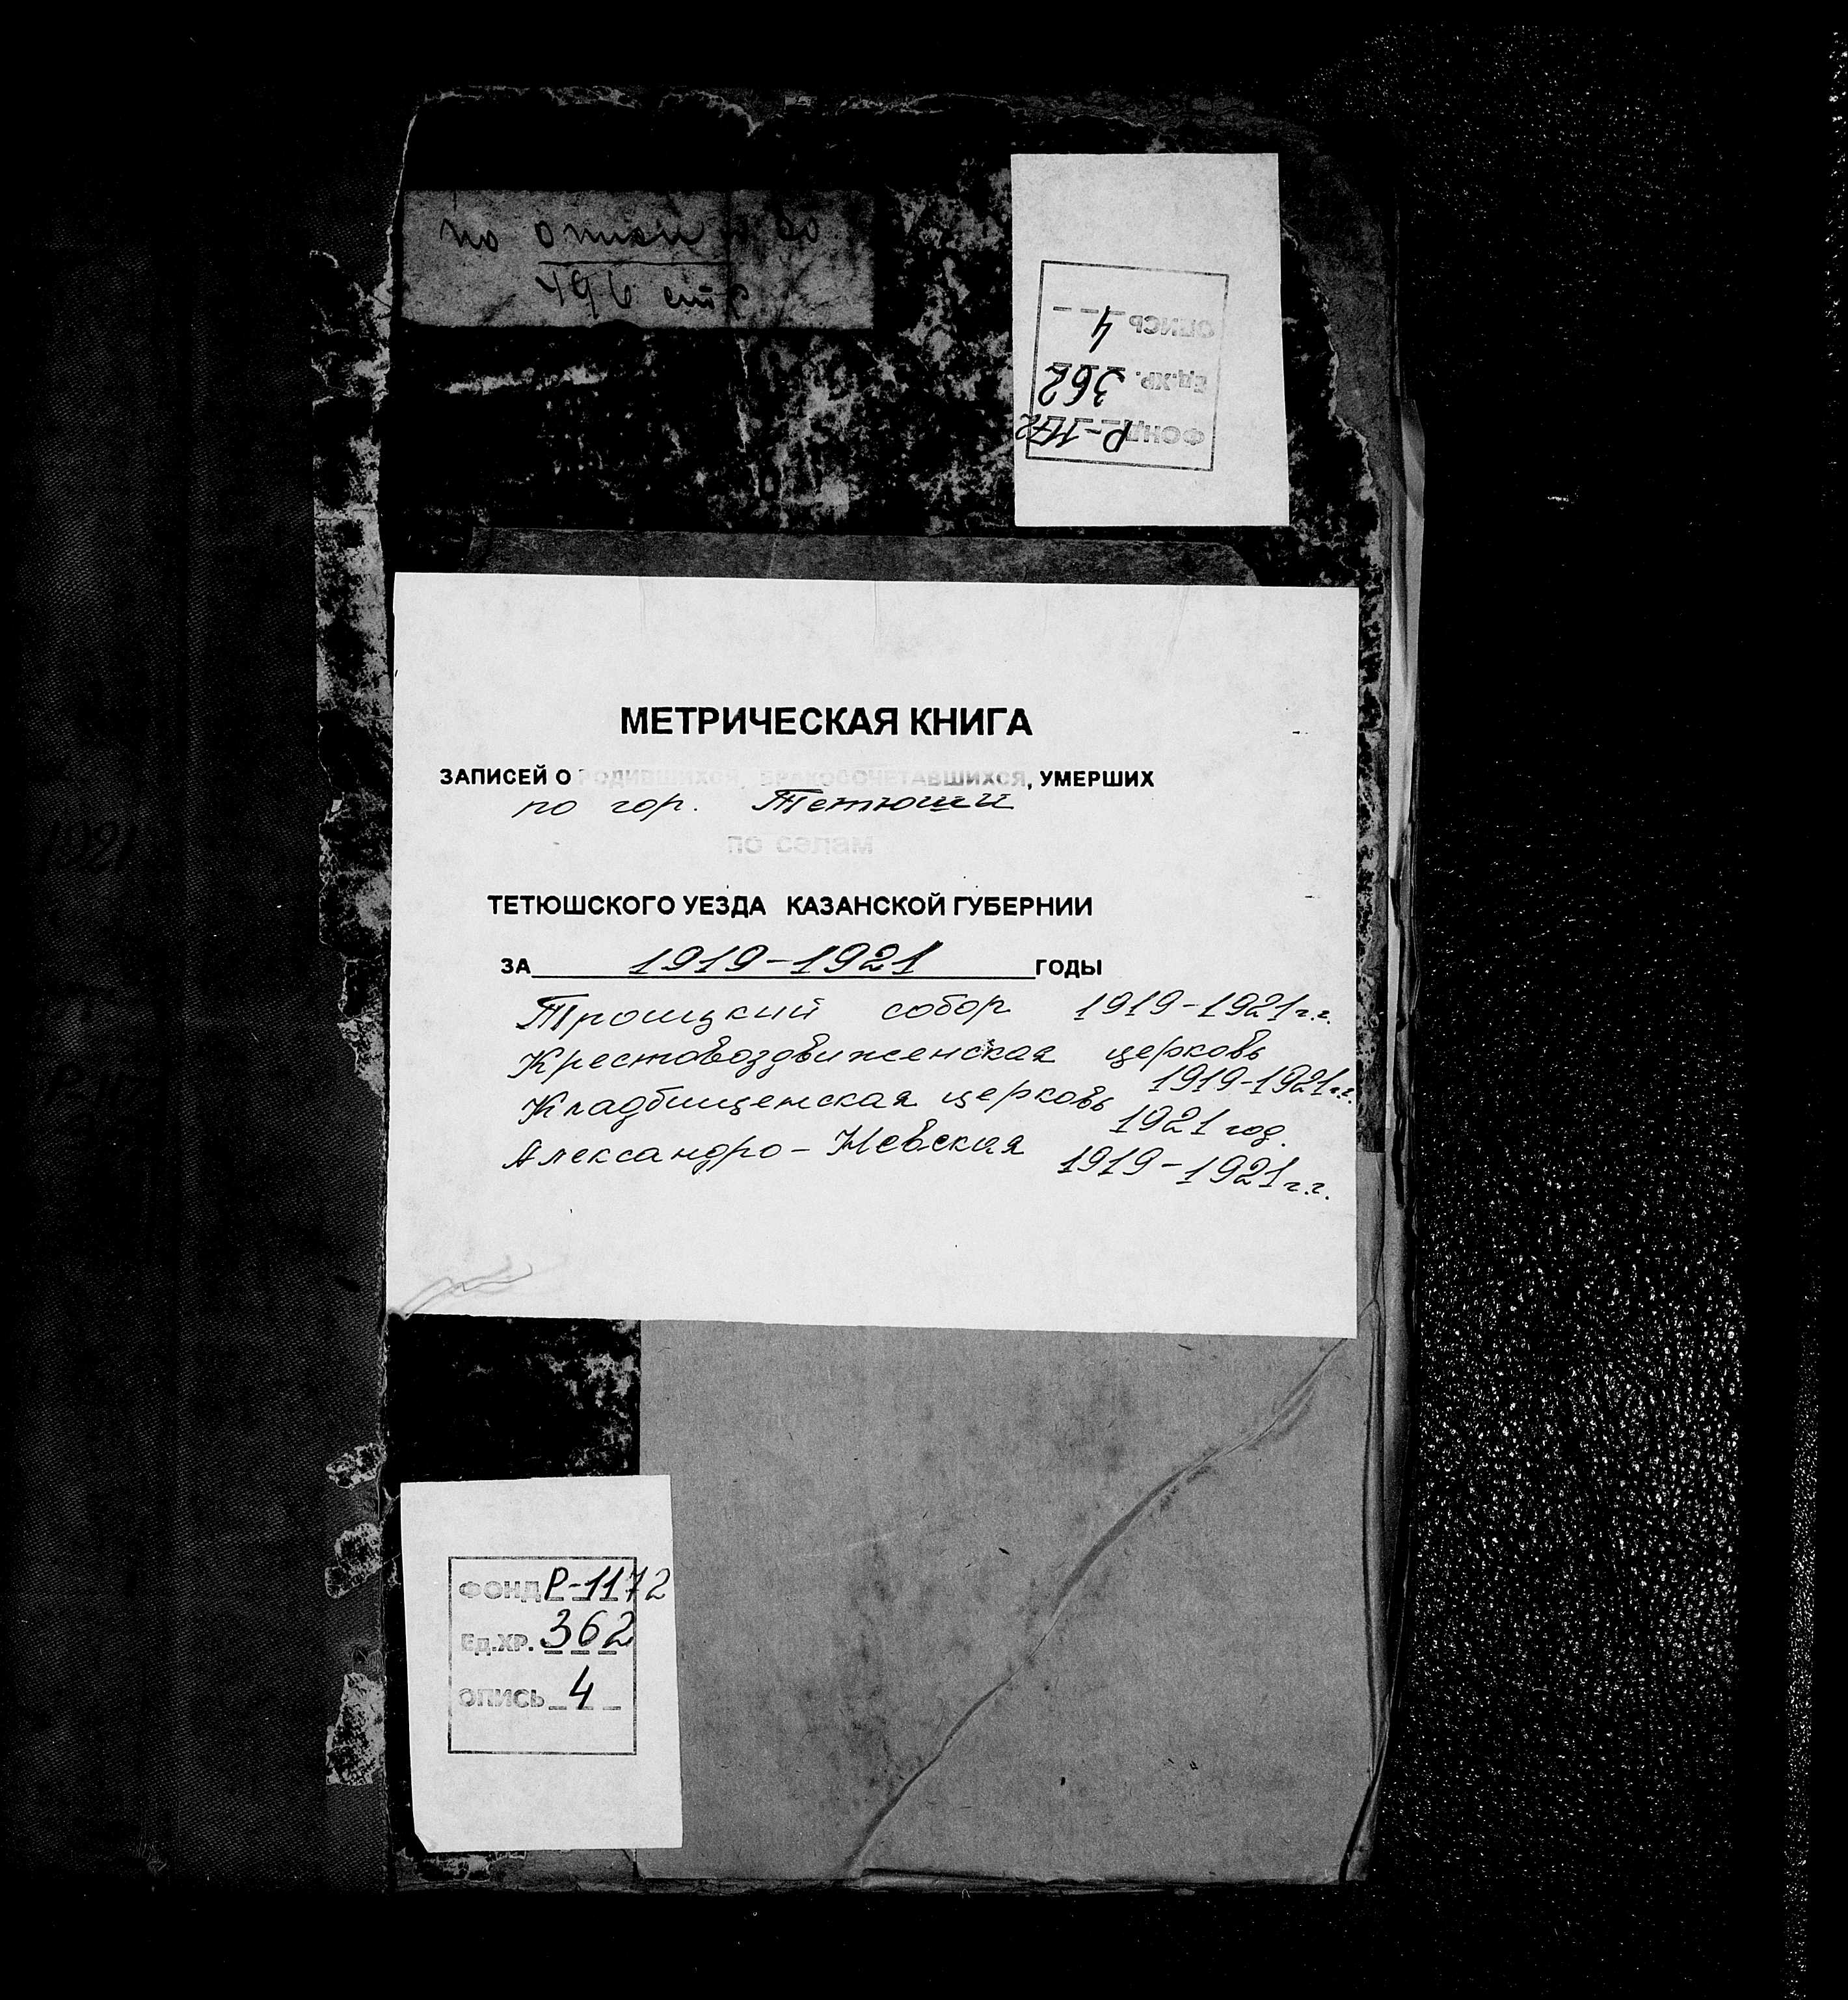 по описи
496 стр
ОПИСЬ 4
Ед.ХР. 362
ФОНД Р-1172
МЕТРИЧЕСКАЯ КНИГА
ЗАПИСЕЙ О РОДИВШИХСЯ, БРАКОСОЧЕТАВШИХСЯ, УМЕРШИХ
по гор. Тетюши
по селам
ТЕТЮШСКОГО УЕЗДА КАЗАНСКОЙ ГУБЕРНИИ
ЗА 1919-1921 ГОДЫ
Троицкий собор 1919-1921 г.г.
Крестовоздвиженская церковь
1919-1921 г.г.
Кладбищенская церковь
1921 год.
Александро-Невская 1919-1921 г.г.
ФОНД Р-1172
Ед.ХР. 362
ОПИСЬ 4
1921